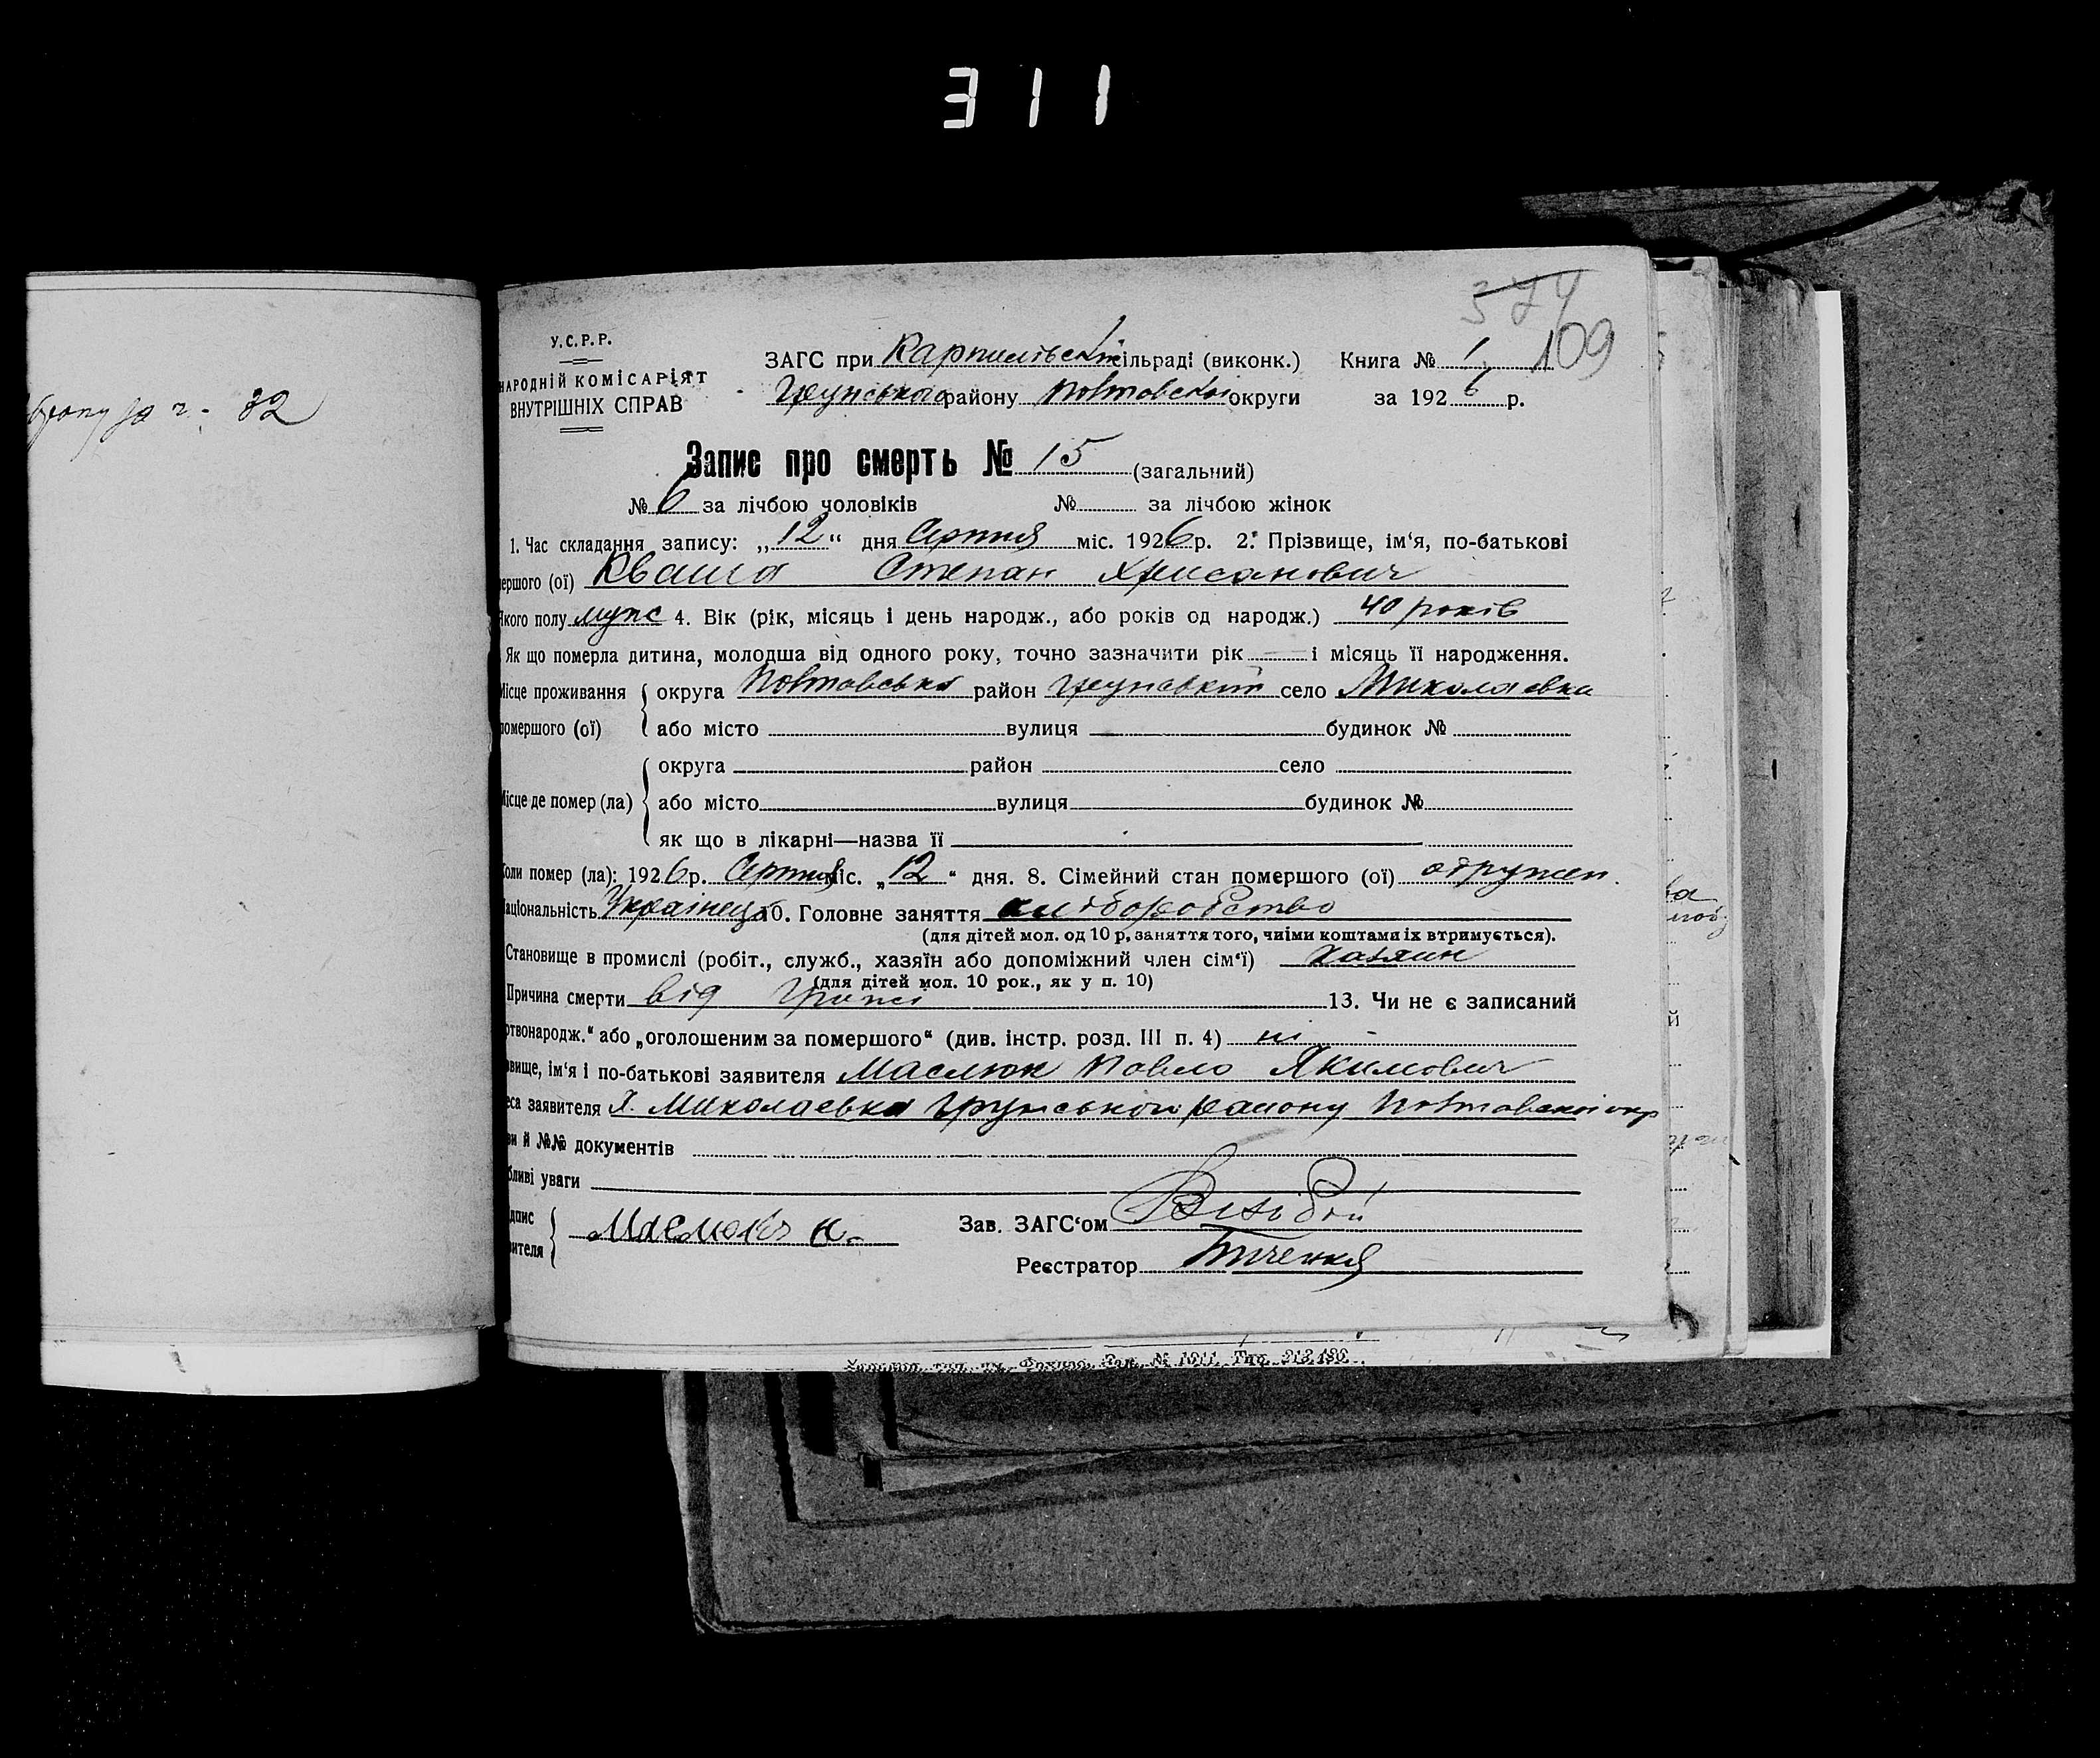 311
374
109
У.С.Р.Р.
НАРОДНІЙ КОМІСАРІЯТ
ВНУТРІШНІХ СПРАВ
ЗАГС при сільраді (виконк.) Книга № 1
району Полтавської округи за 1926 р.
Запис про смерть № 15 (загальний)
№ 6 за лічбою чоловіків № за лічбою жінок
1. Час складання запису: „12“ дня Серпня міс. 1926 р. 2. Прізвище, ім‘я, по-батькові
мершого (ої) Кваша Степан Хрисанович
Якого полу муж 4. Вік (рік, місяць і день народж., або років од народж.) 40 років
Як що померла дитина, молодша від одного року, точно зазначити рік — і місяць її народження.
Місце проживання округа Полтавська район Грунський село Миколаевка
помершого (ої) або місто вулиця будинок №
округа район село
Місце де помер (ла) або місто вулиця будинок №
як що в лікарні—назва її
Коли помер (ла): 1926 р. Серпня міс. „12“ дня. 8. Сімейний стан помершого (ої) одружен.
аціональність Українець 10. Головне заняття хліборобство
(для дітей мол. од 10 р, заняття того, чиїми коштами їх втримується).
Становище в промислі (робіт., служб., хазяїн або допоміжний член сім‘ї) хазяин
(для дітей мол. 10 рок., як у п. 10)
Причина смерти від 13. Чи не є записаний
ртвонародж.“ або „оголошеним за помершого“ (див. інстр. розд. III п. 4) ні -
вище, ім‘я і по-батькові заявителя Маслюк Павло Якимович
еса заявителя Х. Миколаевка Грунського району Полтавської окр
ви й №№ документів
бливі уваги
дпис
вителя
Маслюк П.
Зав. ЗАГС‘ом
Реєстратор
32
Зам. № 1011. Тир. 212.480.